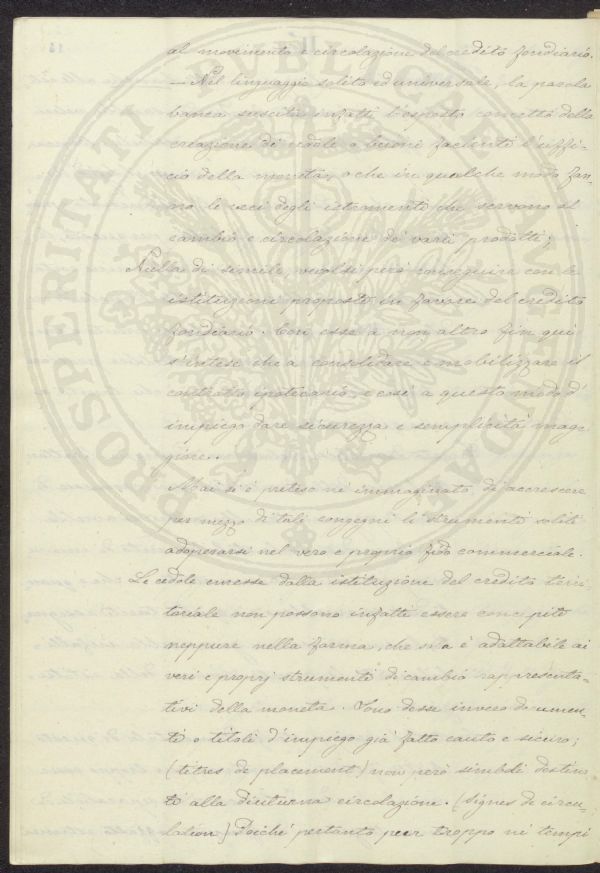 al movimento e circolazione del credito fondiario.
— Nel linguaggio solito ed universale, la parola
banca suscita infatti l'esposto concetto della
creazione di cedole o buoni facienti l'uffi-
cio della moneta, o che in qualche modo fan-
no le veci degli istromenti che servono al
cambio e circolazione de' varii prodotti;
Nulla di simile, vuolsi però conseguire con le
istituzioni proposte in favore del credito
fondiario. Con esse a non altro fin quì
s'intese che a consolidare e mobilizzare il
contratto ipotecario, e così a questo modo d'
impiego dare sicurezza e semplicità mag-
giore.
Mai si è preteso nè immaginato di accrescere
per mezzo di tali congegni li strumenti soliti
adoperarsi nel vero e proprio fido commerciale.
Le cedole emesse dalla istituzione del credito terri-
toriale non possono infatti essere concepite
neppure nella forma, che sia è adattabile ai
veri e proprj strumenti di cambio rappresenta-
tivi della moneta. Sono desse invece documen-
ti o titoli d'impiego già fatto cauto e sicuro;
(titres de placement) non però simboli destina-
ti alla diuturna circolazione. (signes de circu-
lation) Poichè pertanto pur troppo ni tempi
PROSPERITATI PUBLICAE AUGENDAE